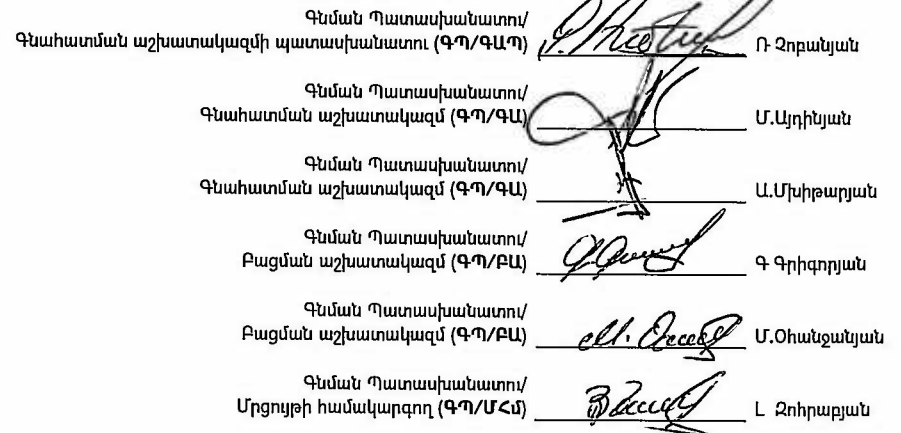 Գնման Պատասխանատու/
Գնահատման աշխատակազմի պատասխանատու (ԳՊ/ԳԱՊ) Ռ Չոբանյան
Գնման Պատասխանատու/
Գնահատման աշխատակազմ (ԳՊ/ԳԱ) Մ.Այդինյան
Գնման Պատասխանատու/
Գնահատման աշխատակազմ (ԳՊ/ԳԱ) Ա.Մխիթարյան
Գնման Պատասխանատու/
Բացման աշխատակազմ (ԳՊ/ԲԱ) Գ Գրիգորյան
Գնման Պատասխանատու/
Բացման աշխատակազմ (ԳՊ/ԲԱ) Մ.Օհանջանյան
Գնման Պատասխանատու/
Մրցույթի համակարգող (ԳՊ/ՄՀմ) Լ Զոհրաբյան